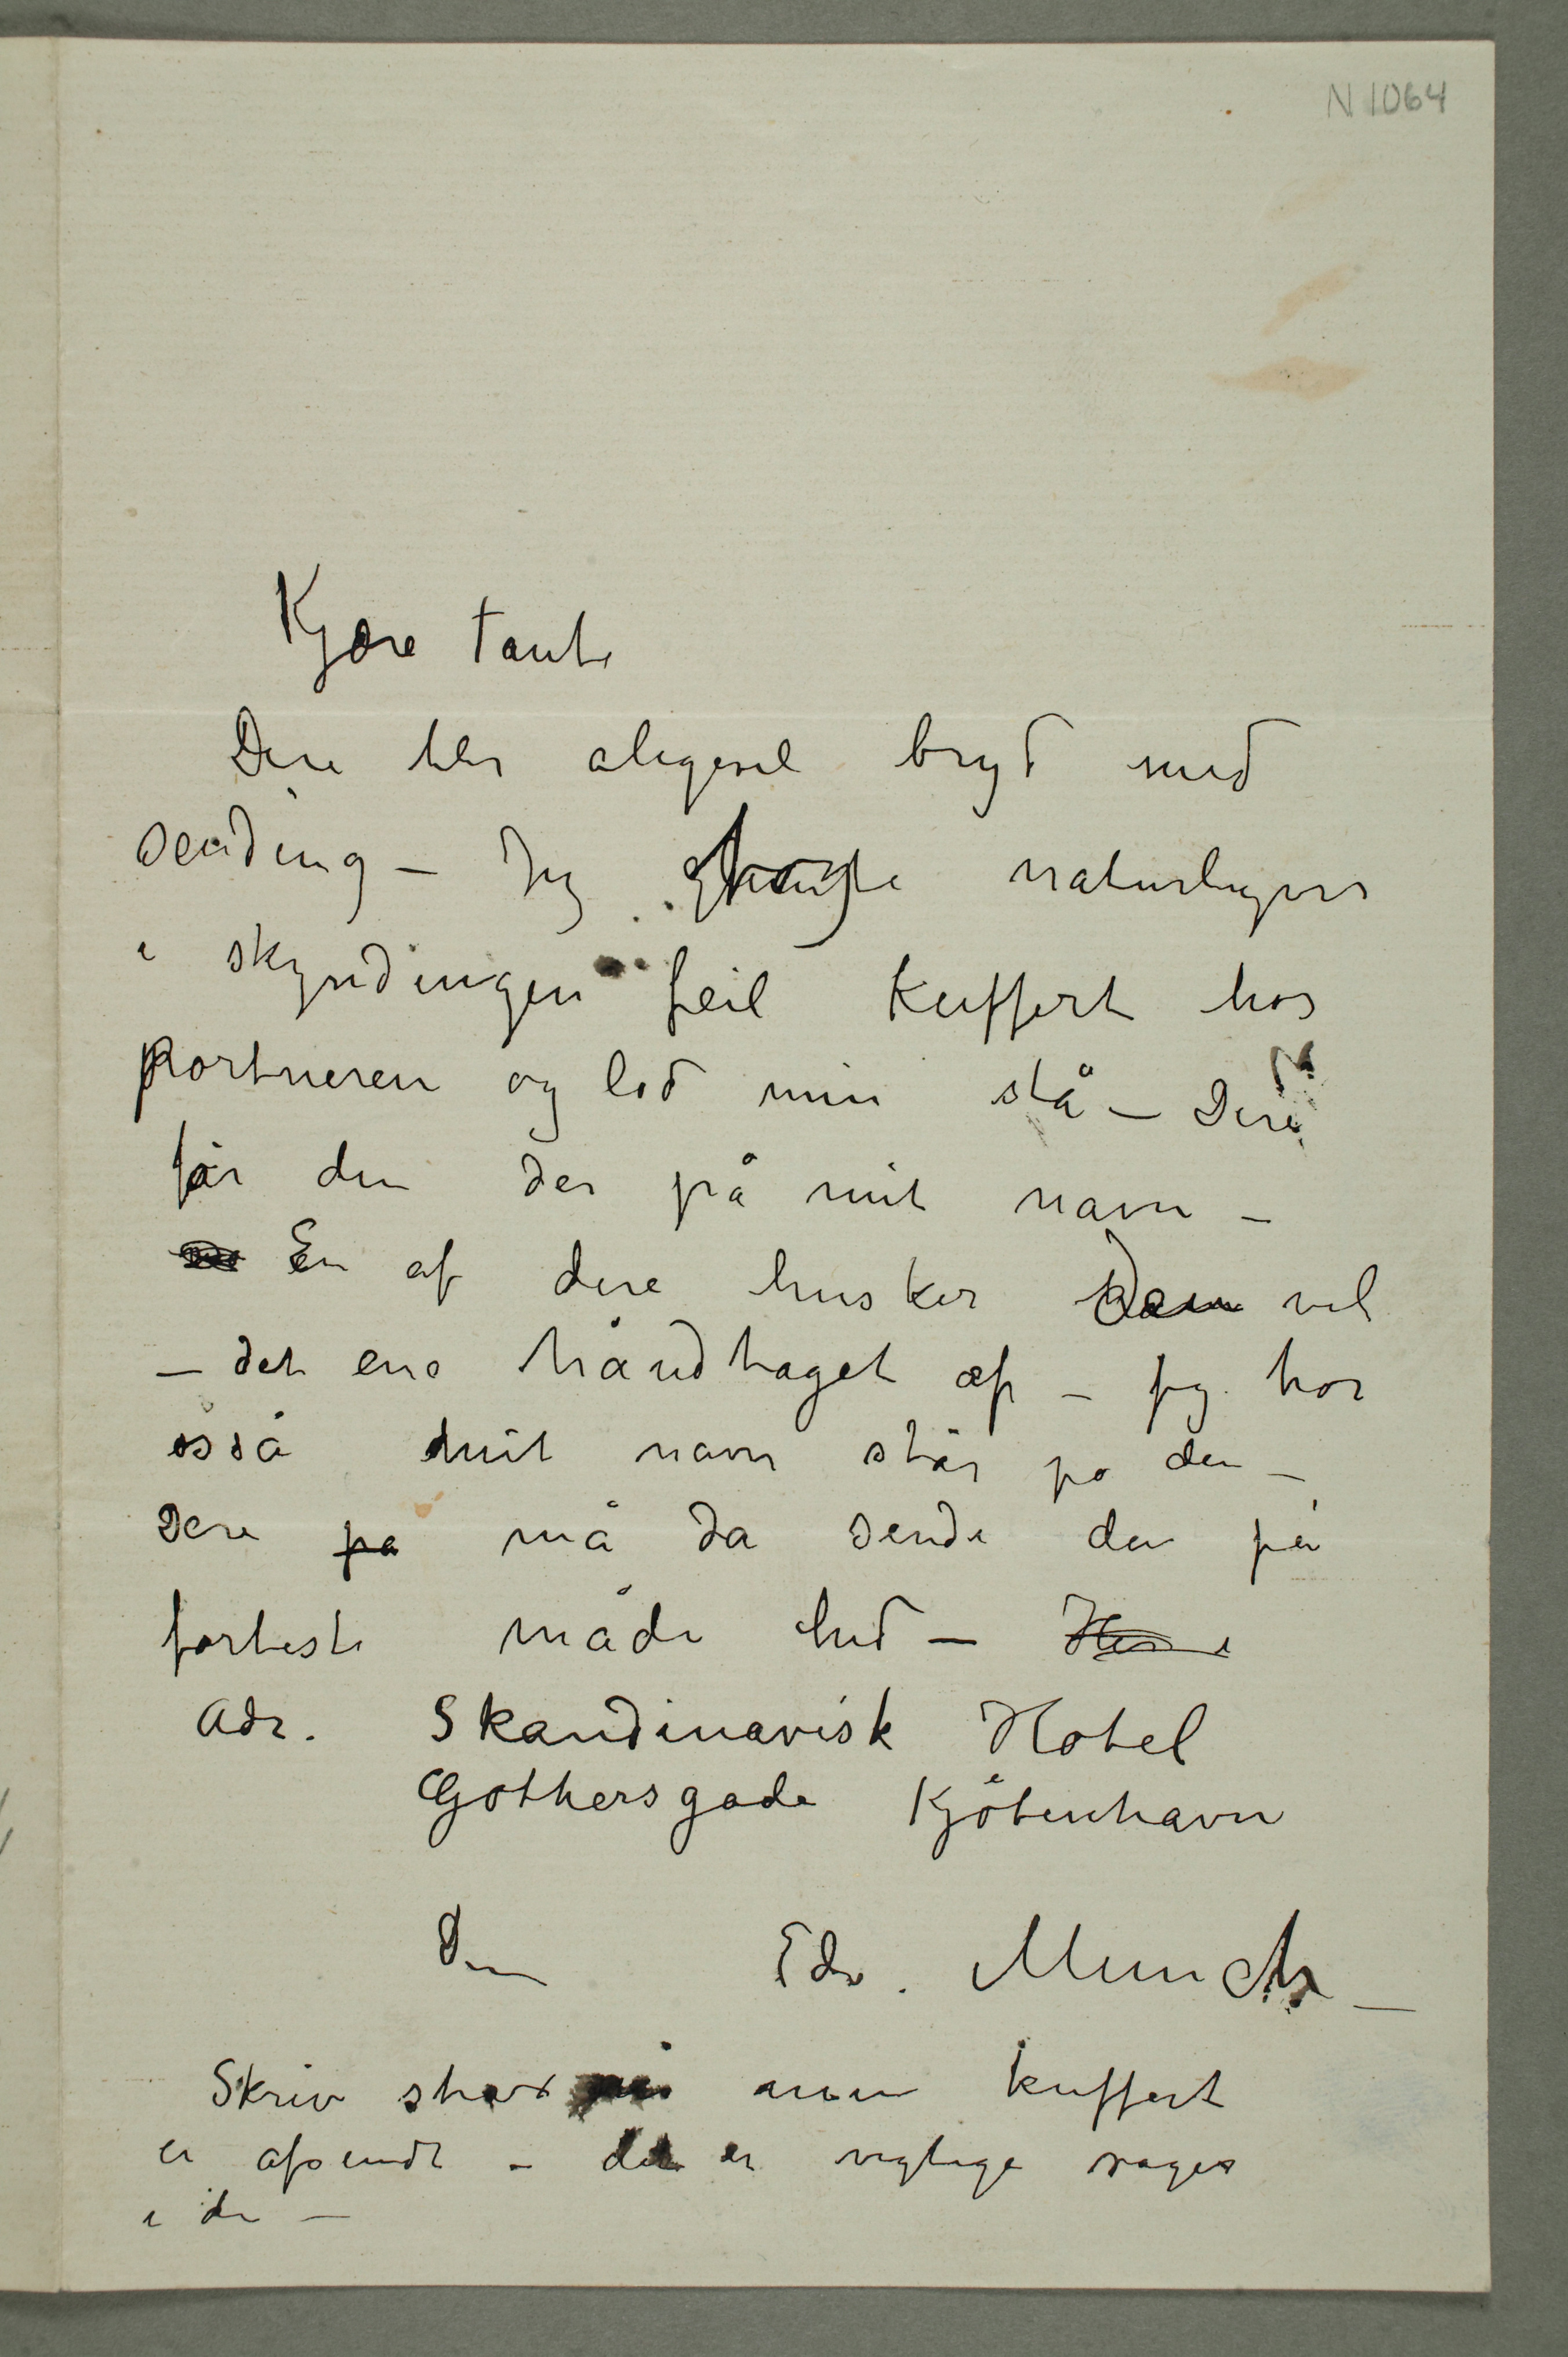 N 1064
Kjære tante
Dere blir aligevel bryd med
sending – Jeg naturligvis
i skyndingen feil kuffert hos
portneren og lod min stå – Dere
får den der på mit navn –
En af dere husker Dem vel
– det ene håndtaget af – Jeg tror
osså mit navn står på den –
Dere på må da sende den på
forteste måde hid –
Adr. Skandinavisk Hotel
Gothersgade Kjöbenhavn
Din Edv. Munch –
Skriv strax min kuffert
er afsendt – det er vigtige sager
i den –